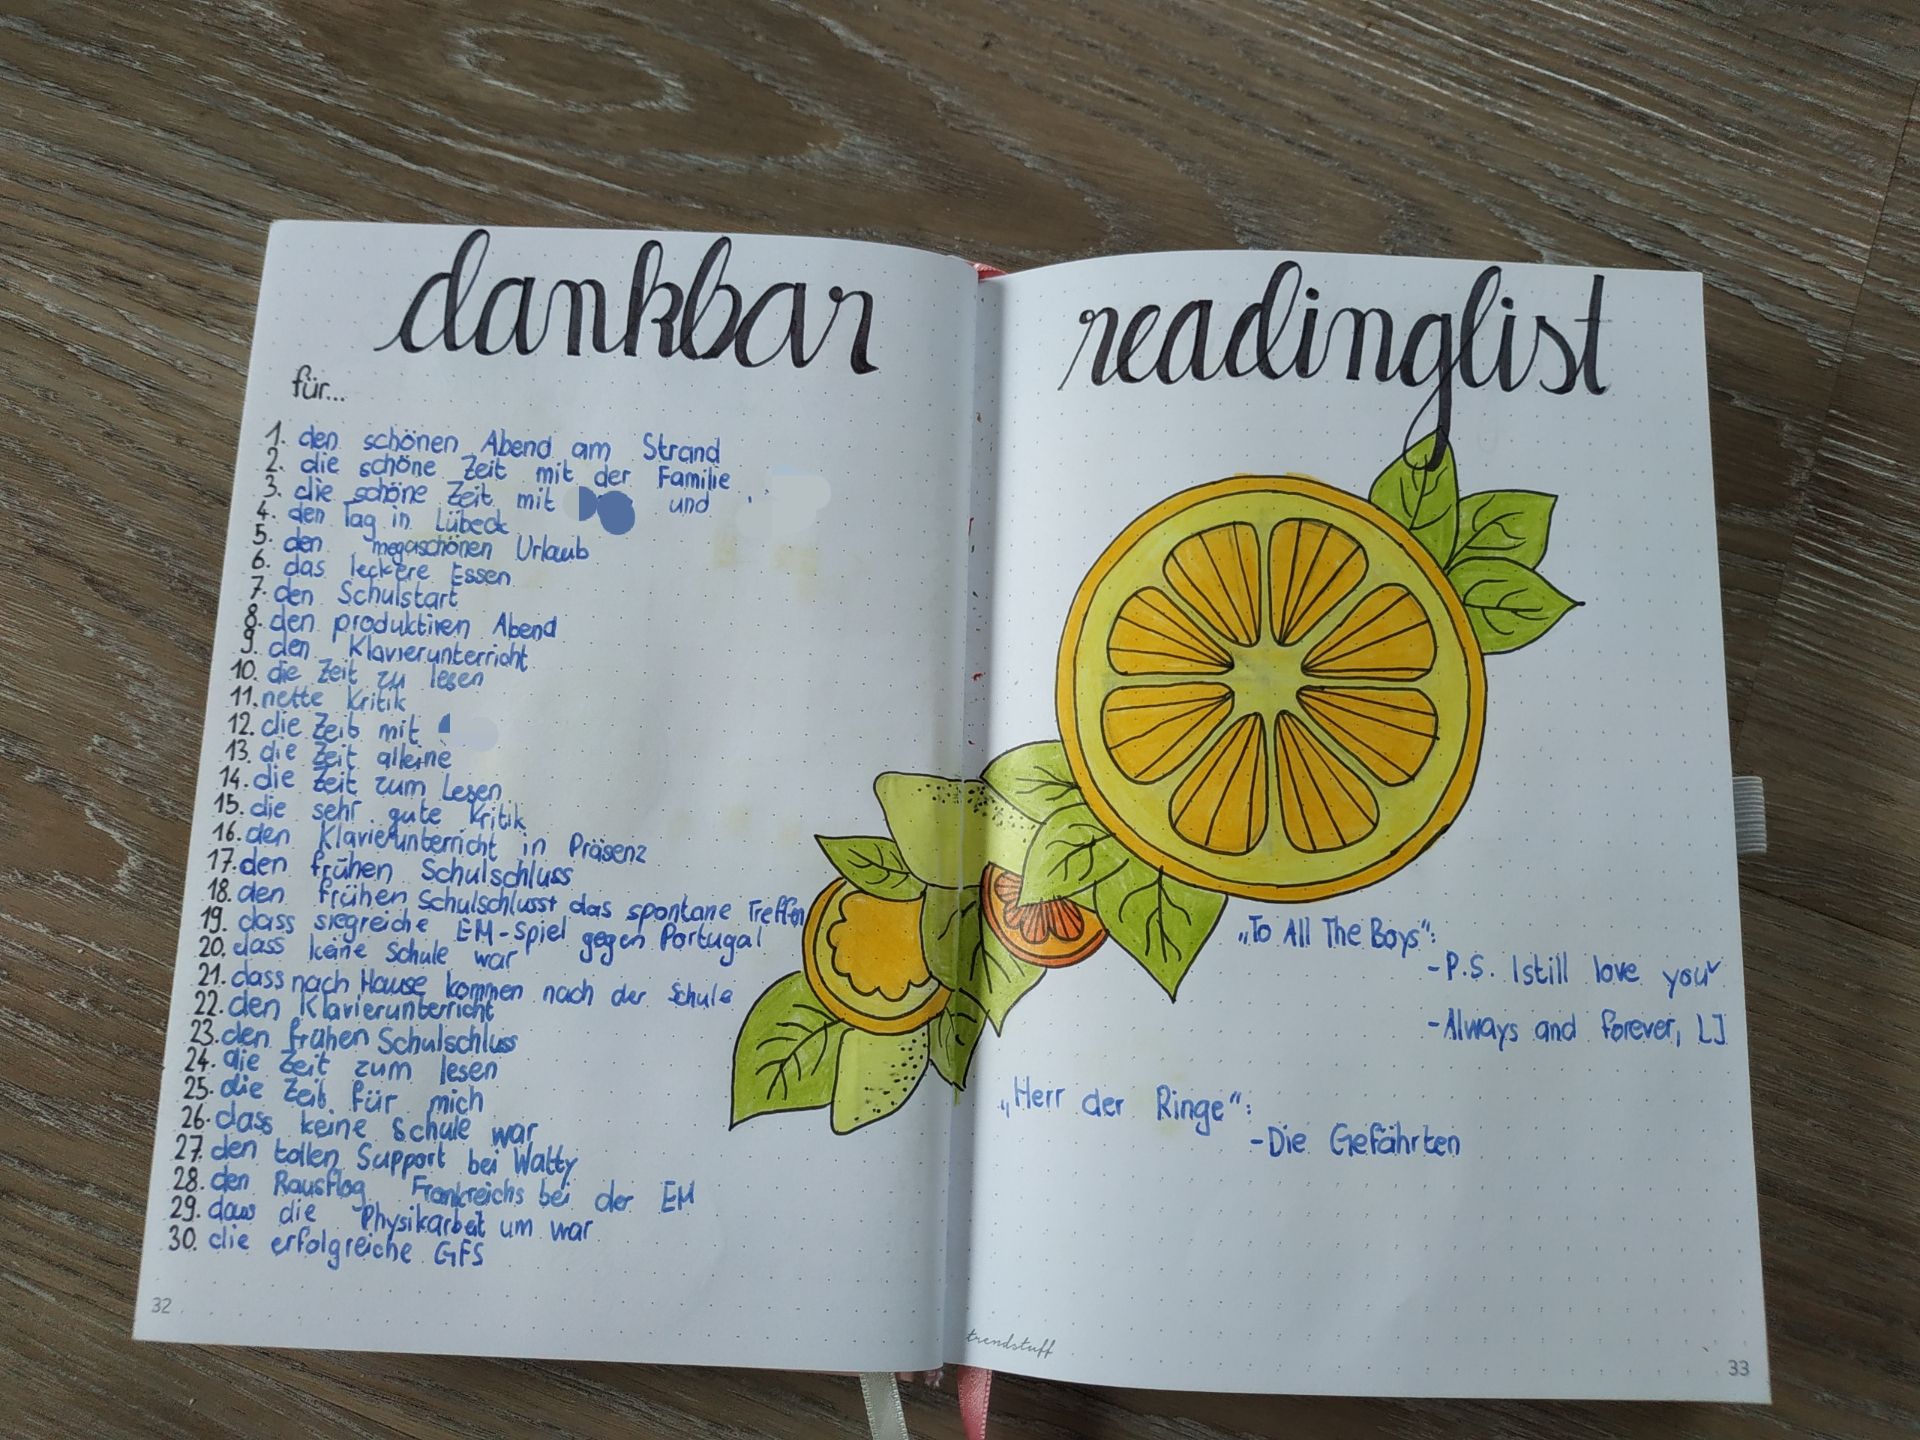 dankbar
für...
1. den schönen Abend am Strand
2. die schöne Zeit mit der Familie
3. die schöne Zeit mit und
4. den Tag in Lübeck
5. den megaschönen Urlaub
6. das leckere Essen
7. den Schulstart
8. den produktiven Abend
9. den Klavierunterricht
10. die Zeit zu lesen
11. nette Kritik
12. die Zeit mit
13. die Zeit alleine
14. die Zeit zum Lesen
15. die sehr gute Kritik
16. den Klavierunterricht in Präsenz
17. den frühen Schulschluss
18. den frühen Schulschluss+ das spontane Treffen
19. dass siegreiche EM-Spiel gegen Portugal
20. dass keine Schule war
21. dass nach Hause kommen nach der Schule
22. den Klavierunterricht
23. den frühen Schulschluss
24. die Zeit zum lesen
25. die Zeit für mich
26. dass keine Schule war
27. den tollen Support bei Watty
28. den Rausflog Frankreichs bei der EM
29. dass die Physikarbeit um war
30. die erfolgreiche GFS
32
readinglist
„To All The Boys“:
-P.S. I still love you
-Always and forever, LJ
„Herr der Ringe“:
-Die Gefährten
trendstuff
33